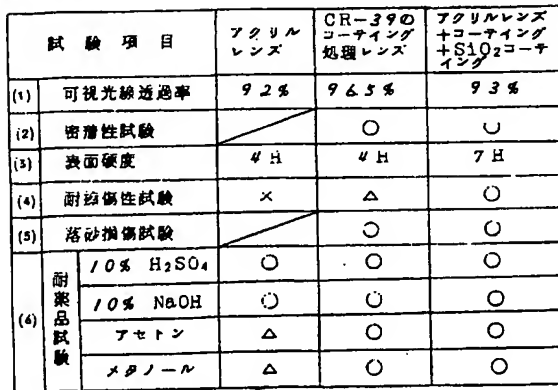 試験項目
アクリル
レンズ
CR-39の
コーティング
処理レンズ
アクリルレンズ
+コーティング
+SiO2コーテ
イング
(1) 可視光線透過率 92% 96.5% 93%
(2) 密着性試験 ○ ○
(3) 表面硬度 4H 4H 7H
(4) 耐擦傷性試験 × △ ○
(5) 落砂損傷試験 ○ ○
(6) 耐薬品試験
10% H2SO4 ○ ○ ○
10% NaOH ○ ○ ○
アセトン △ ○ ○
メタノール △ ○ ○